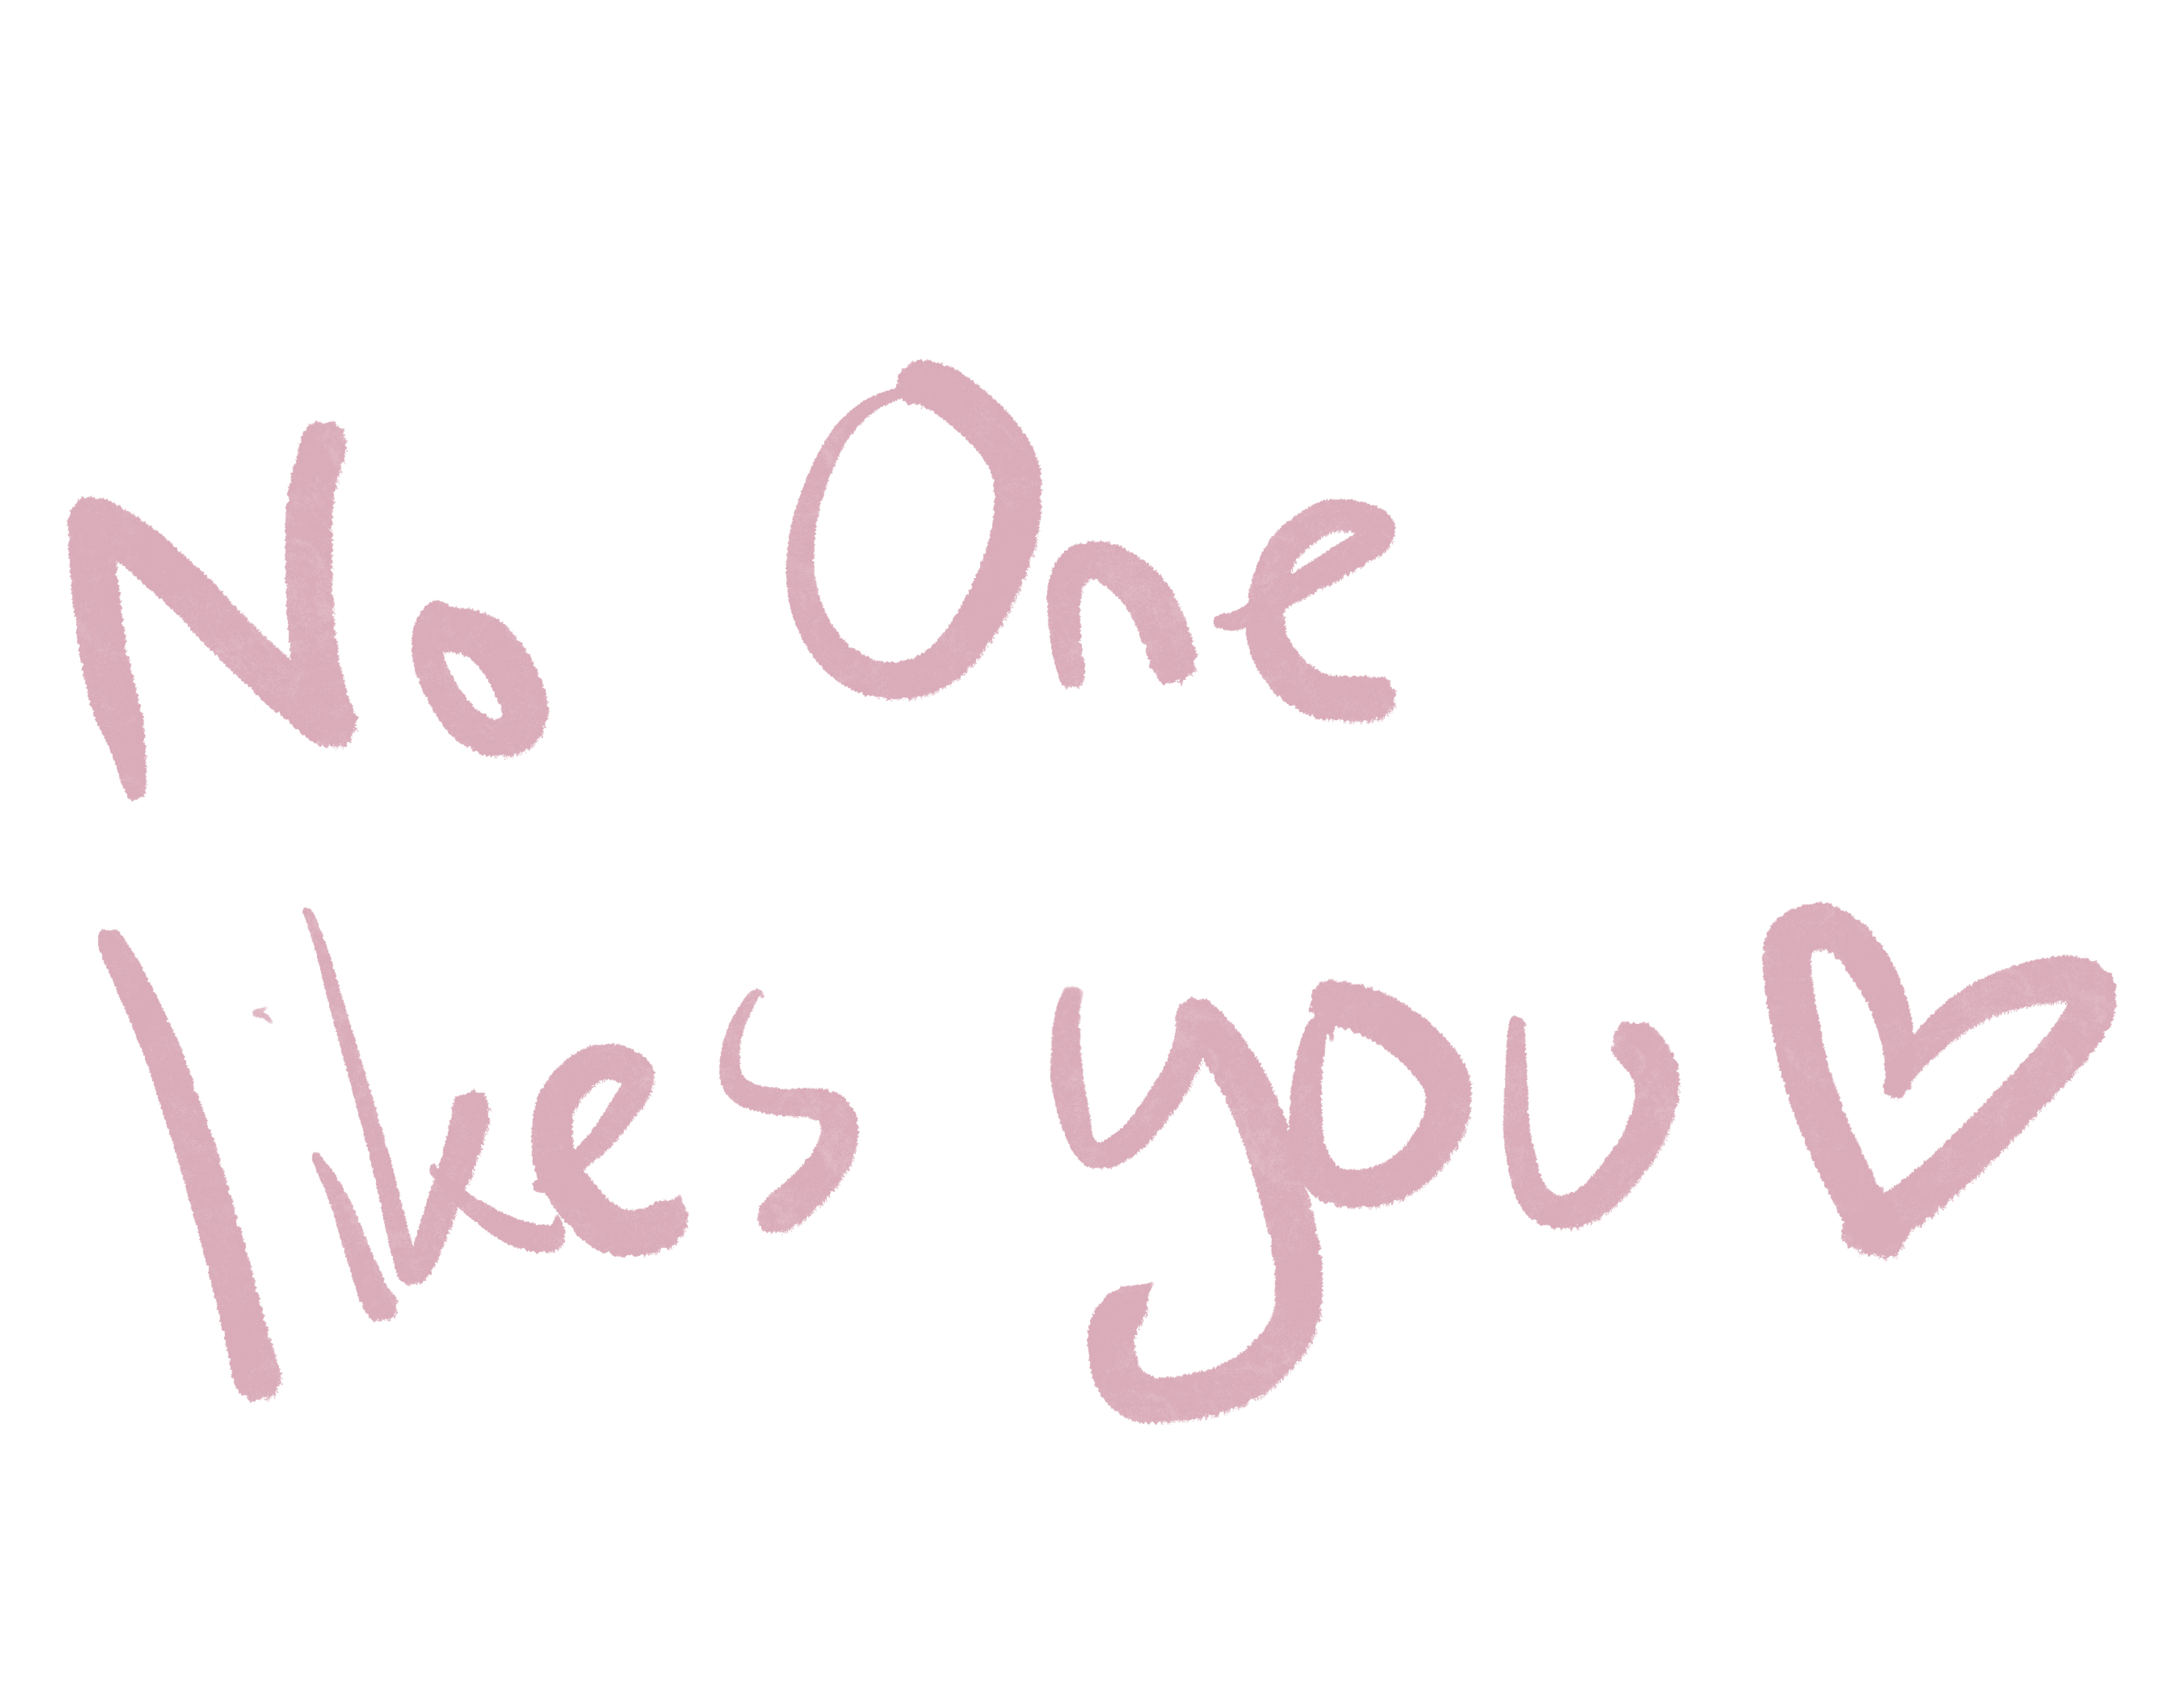 No One
likes you♡